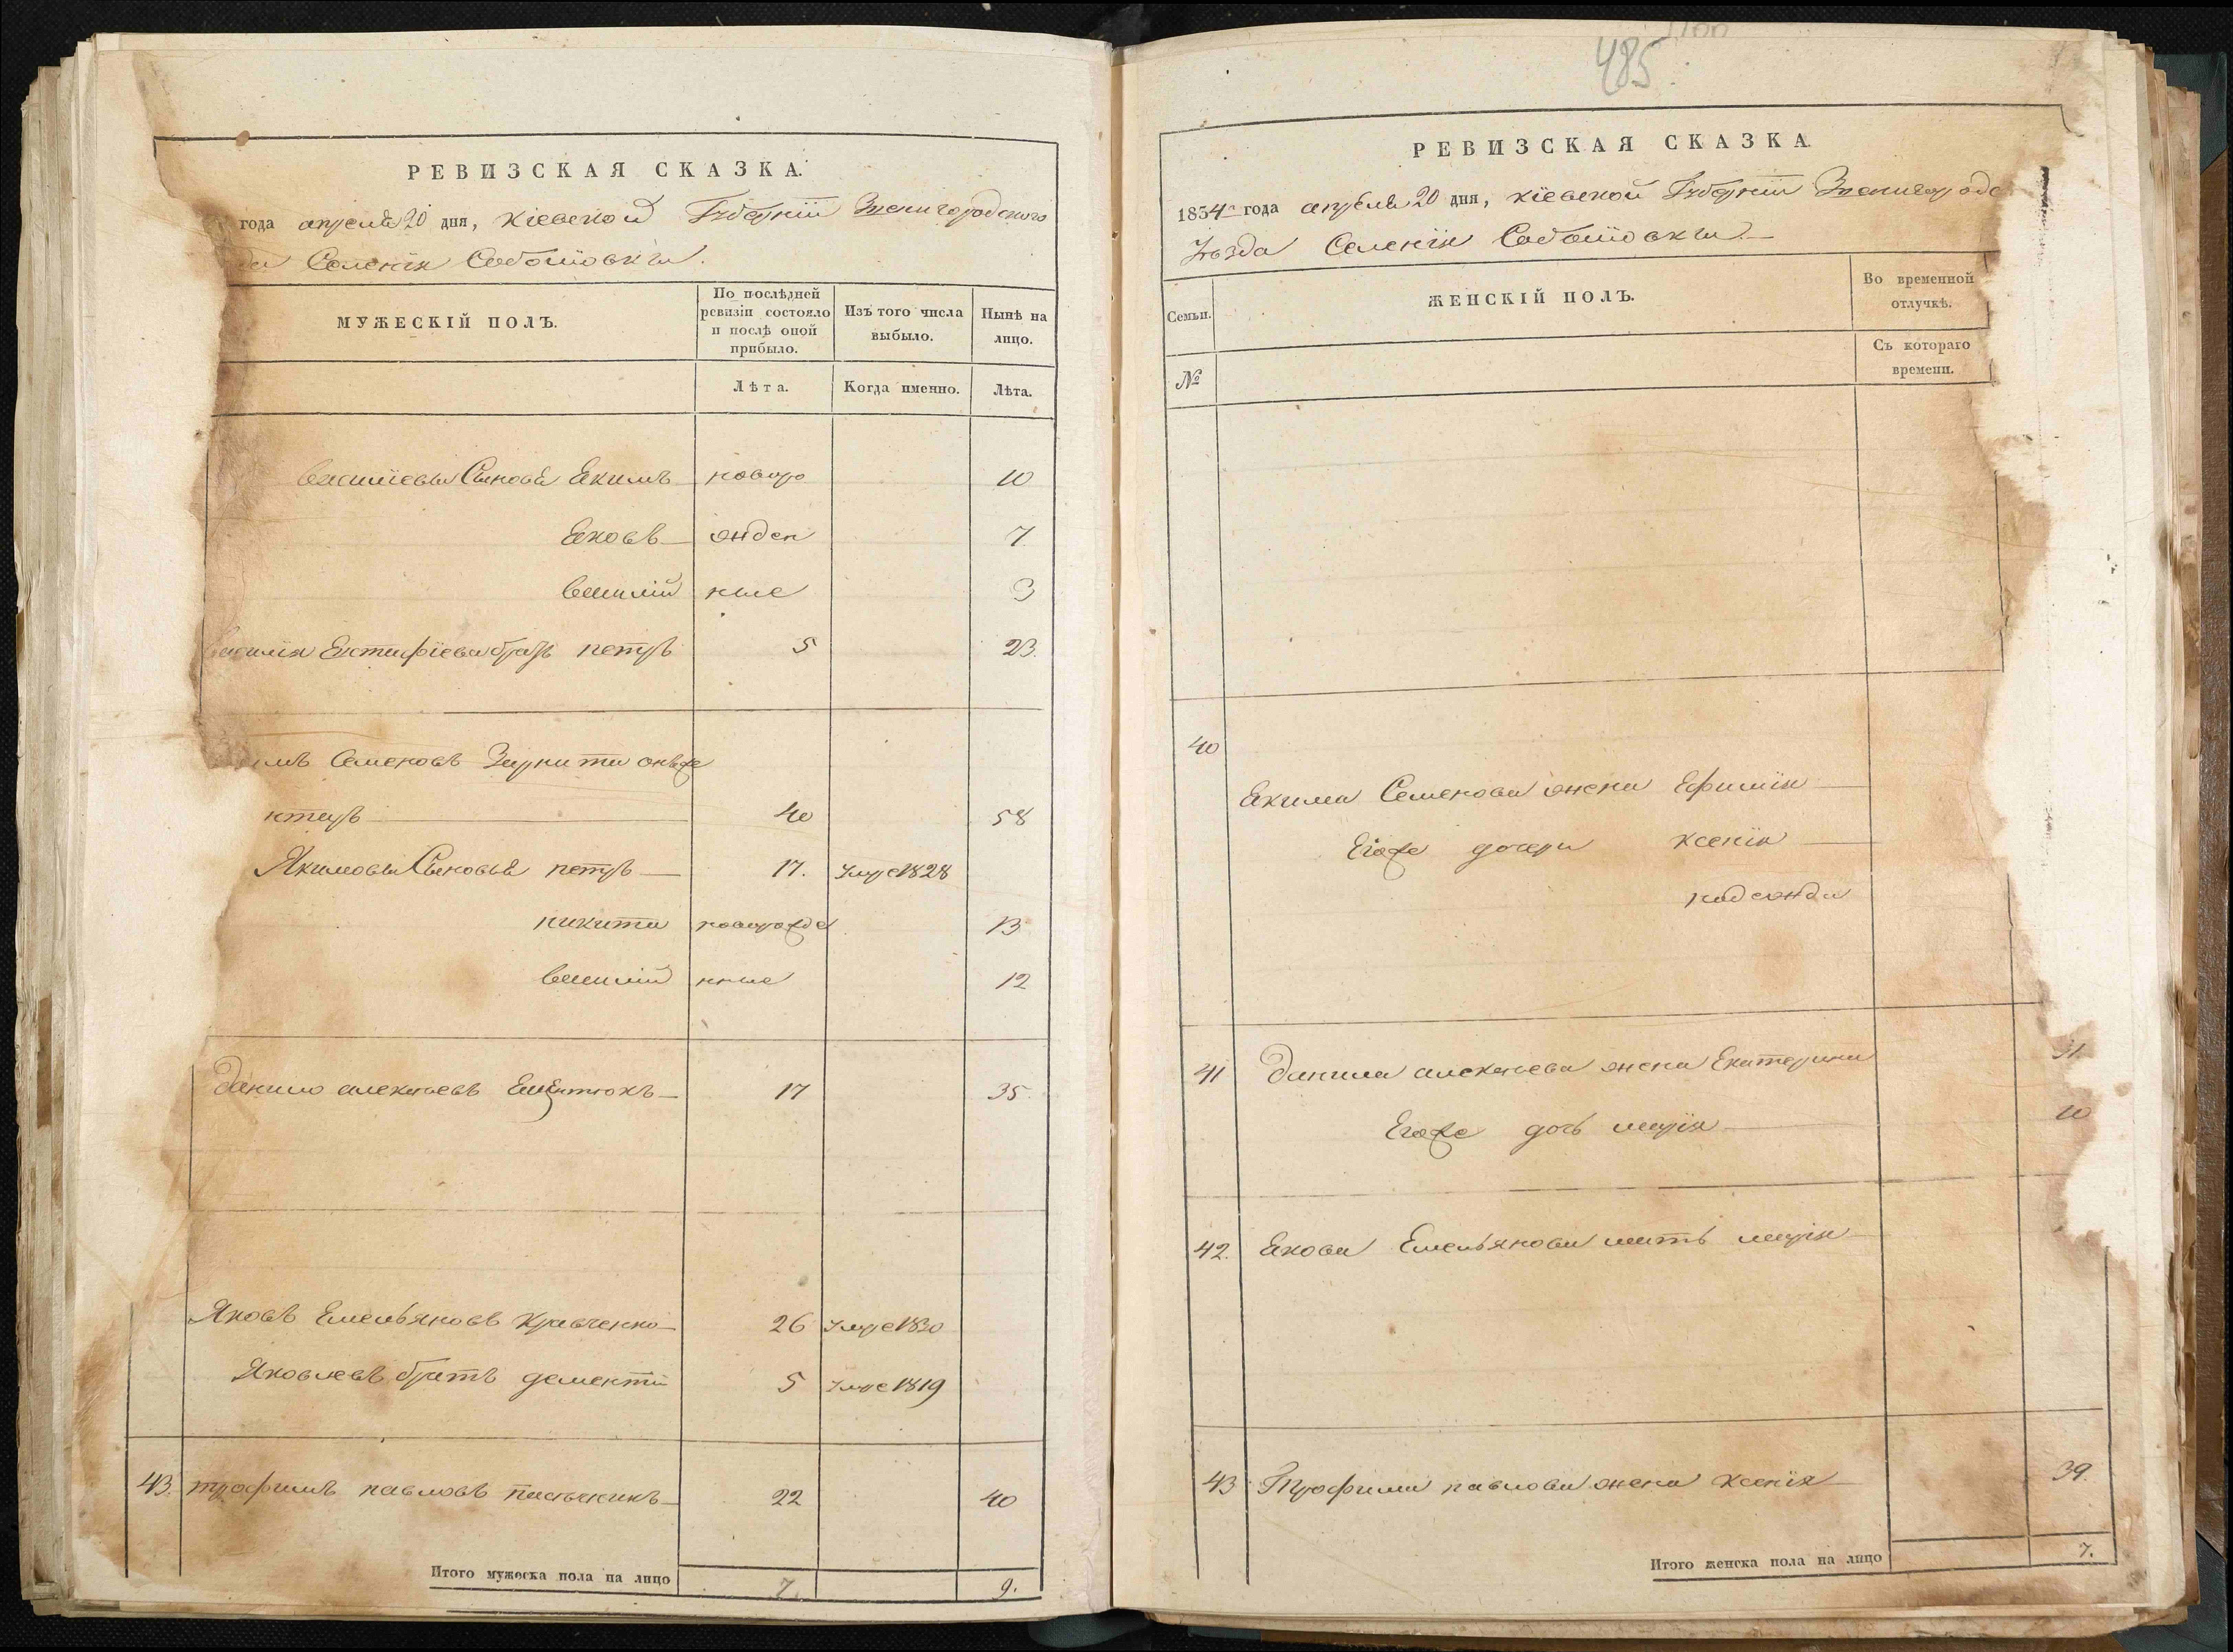 РЕВИЗСКАЯ СКАЗКА.
года апреля 20 дня, Кіевской Губерніи Звенигородского
Селенія Соболіовки.
МУЖЕСКІЙ ПОЛЪ.
По послѣдней ревизіи состояло и послѣ оной прибыло.
Изъ того числа выбыло.
Нынѣ на лицо.
Лѣта.
Когда именно.
Лѣта.
Василіевы Сыновья Екимъ новоро 10
Яковъ жден 7
василій ные 3
Евстафіева братъ петръ 5 23.
Семеновъ онъже
40 58
Якимовы Сыновья петръ 17. Умре 1828
никита новорожде 13
василій нные 12
Данило алексѣевъ 17 35
Яковъ Емельяновъ Кравченко 26 Умре 1830
Яковлевъ братъ дементій 5 Умре 1819
43. трофимъ павловъ пасѣчникъ 22 40
Итого мужеска пола на лицо 7. 9.
485
РЕВИЗСКАЯ СКАЗКА.
1834 года апреля 20 дня, Кіевской Губерніи Звенигородс
Уѣзда Селенія Соболіовки
Семьи.
ЖЕНСКІЙ ПОЛЪ.
Во временной отлучкѣ.
№
Съ котораго времени.
40
Екима Семенова жена Ефимія
Егоже дочери Ксенія
41 Данила алексѣева жена Екатерина 31.
Егоже дочь марія 10
42. Якова Емельянова мать марія
43 Трофима павлова жена Ксенія 39.
Итого женска пола на лицо 7.